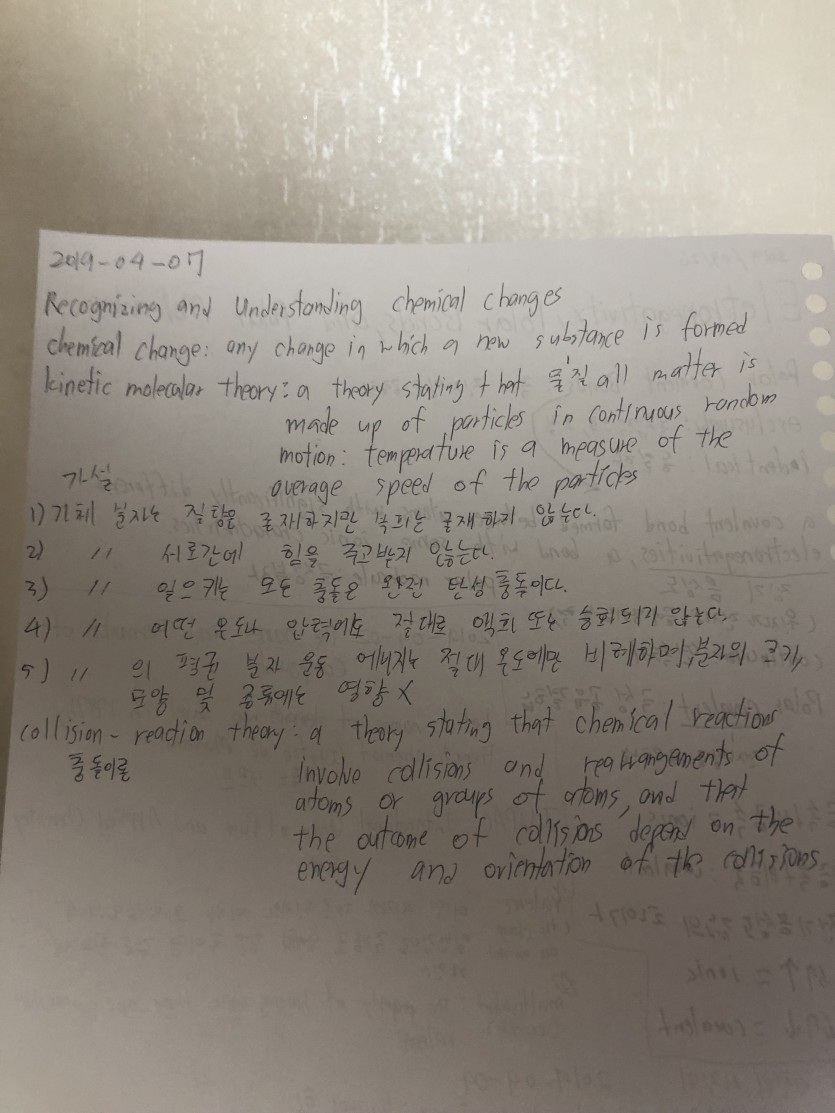 2019-04-07
Recognizing and Understanding chemical changes
chemical change: any change in which a new substance is formed
kinetic molecular theory: a theory stating that 물질 all matter is
made up of particles in continuous random
motion: temperature is a measure of the
가설 average speed of the particles
1) 기체 분자는 질량은 존재하지만 부피는 존재하지 않는다.
2) 〃 서로간에 힘을 주고받지 않는다.
3) 〃 일으키는 모든 충돌은 완전 탄성 충돌이다.
4) 〃 어떤 온도나 압력에도 절대로 액화 또는 승화되지 않는다.
5) 〃 의 평균 분자 운동 에너지는 절대 온도에만 비례하며, 분자의 크기,
모양 및 종류에는 영향 X
collision-reaction theory: a theory stating that chemical reactions
충돌이론 involve collisions and rearrangements of
atoms or groups of atoms, and that
the outcome of collisions depend on the
energy and orientation of the collisions